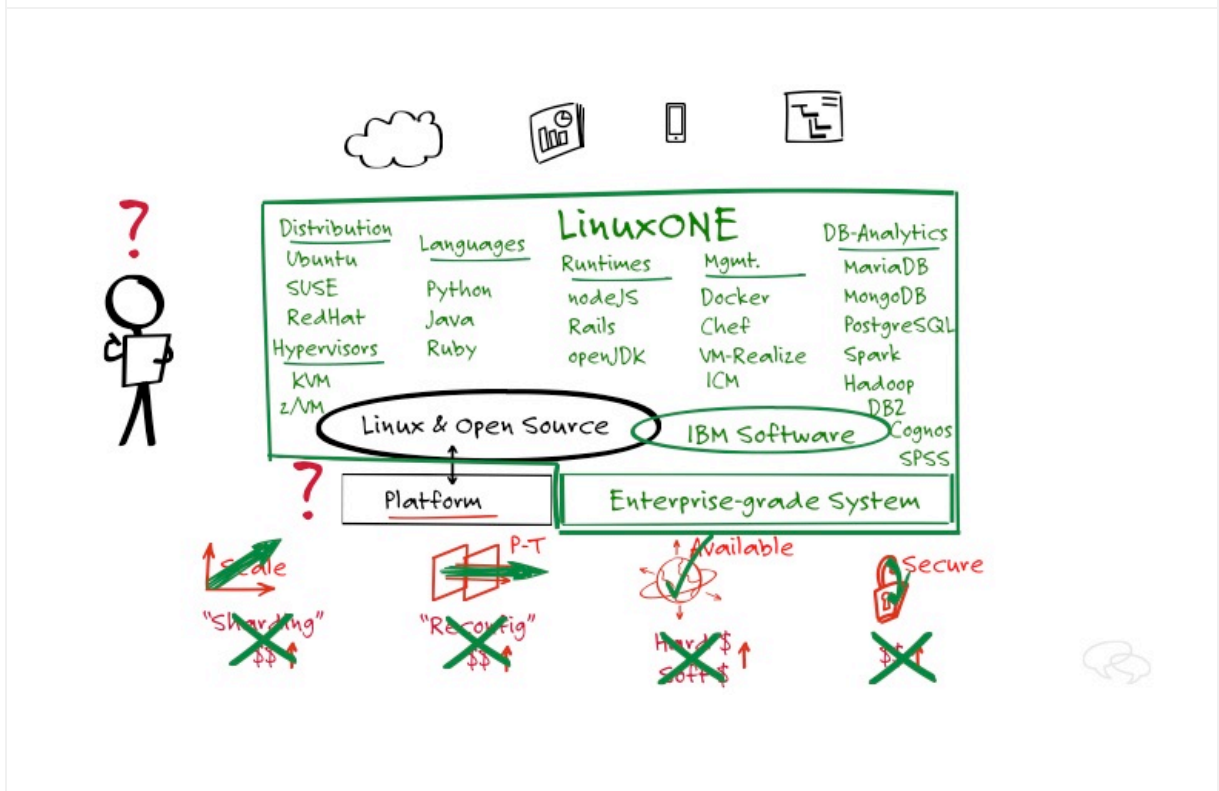 ?
LinuxONE
Distribution
Ubuntu
SUSE
RedHat
Hypervisors
KVM
z/VM
Languages
Python
Java
Ruby
Runtimes
nodeJS
Rails
openJDK
Mgmt.
Docker
Chef
VM-Realize
ICM
DB-Analytics
MariaDB
MongoDB
PostgreSQL
Spark
Hadoop
DB2
Cognos
SPSS
Linux & Open Source
IBM Software
?
Platform
Enterprise-grade System
Scale
"Sharding"
$$
P-T
"Reconfig"
$$
Available
Hard $
Soft $
Secure
$$